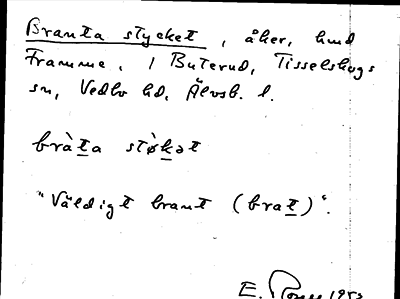 Branta stycket, åker, hmd
Framme, 1 Buterud, Tisselskogs
sn, Vedbo hd, Älvsb. l.
bràt̲a stø̀k̲ət
"Väldigt brant (brat̲)".
E. 1953